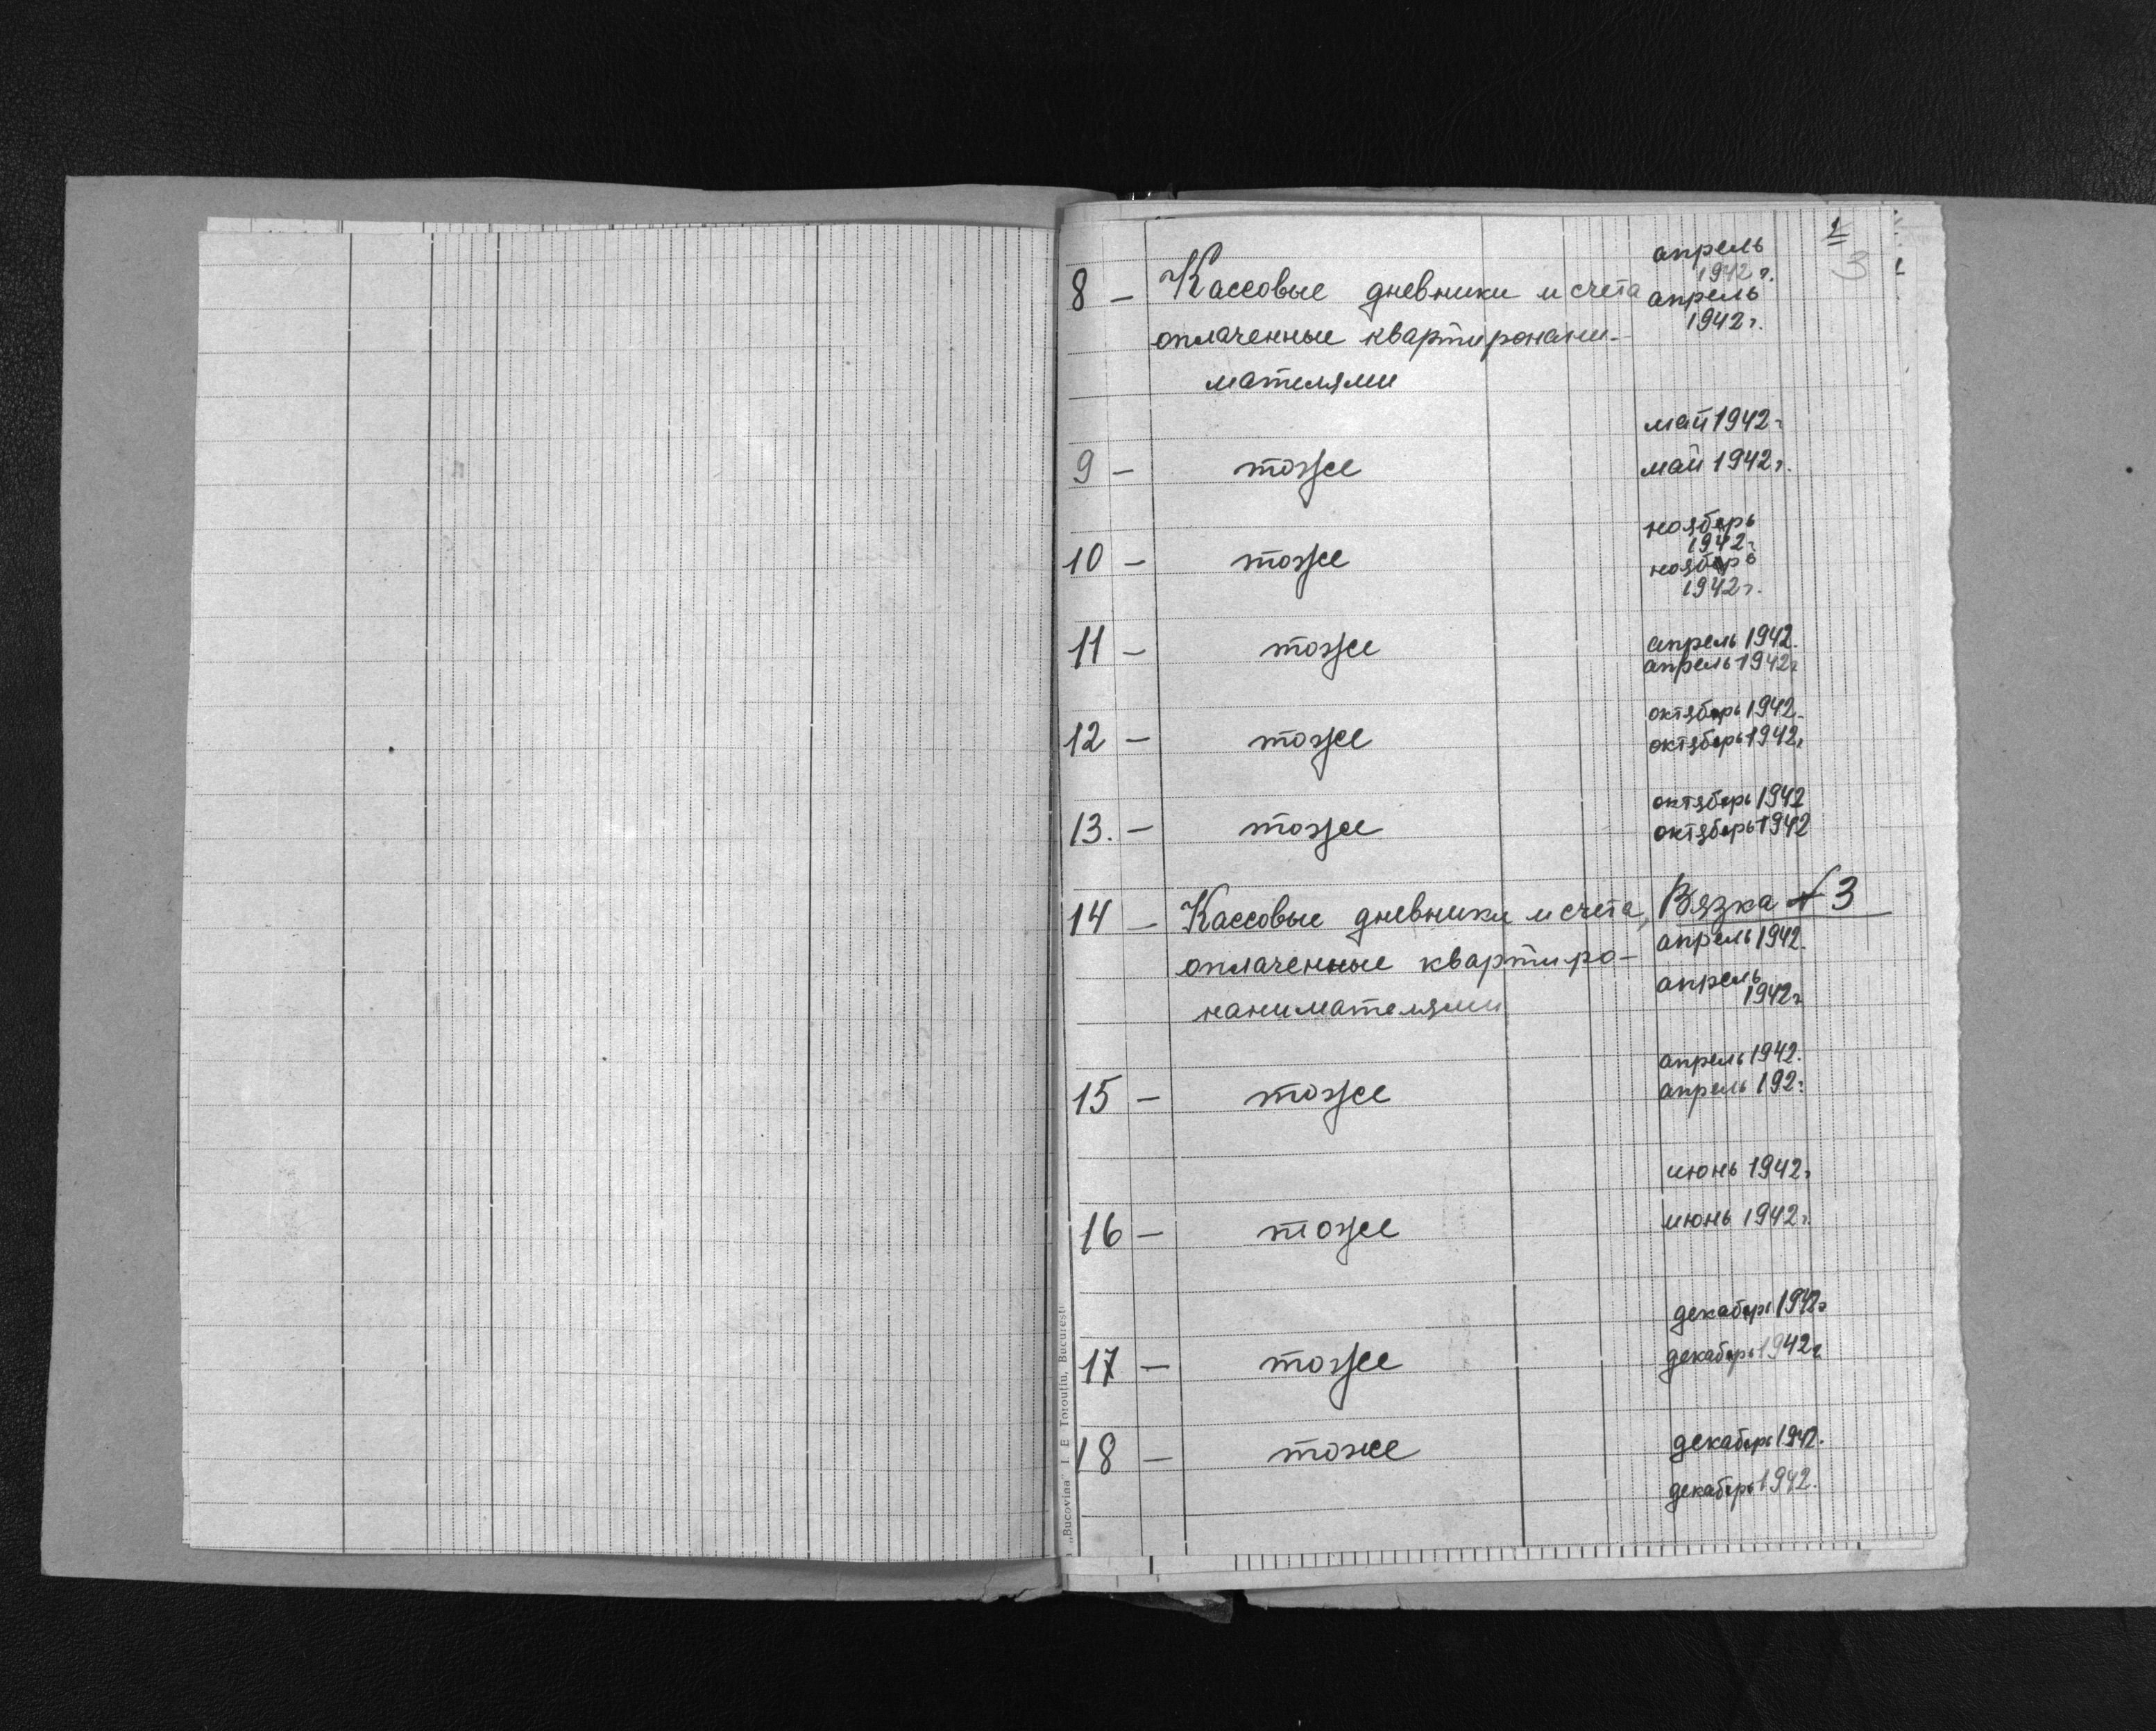 апрель
1942 г.
3
8 — Кассовые дневники и счета апрель
1942 г.
оплаченные квартиронани-
мателями
май 1942 г
9 — тоже май 1942 г.
ноябрь
1942 г
10 — тоже ноябрь
1942 г.
апрель 1942.
11 — тоже апрель 1942 г
октябрь 1942.
12 — тоже октябрь 1942 г
октябрь 1942
13. — тоже октябрь 1942
14 — Кассовые дневники и счета, Вязка № 3
апрель 1942.
оплаченные квартиро-
апрель
1942 г
нанимателями
апрель 1942.
15 — тоже апрель 192 г
июнь 1942 г
16 — тоже июнь 1942 г.
декабрь 1942 г
17 — тоже декабрь 1942 г
18 — тоже декабрь 1942.
декабрь 1942.
„Bucovina" I. E. Toroutiu, Bucuresti